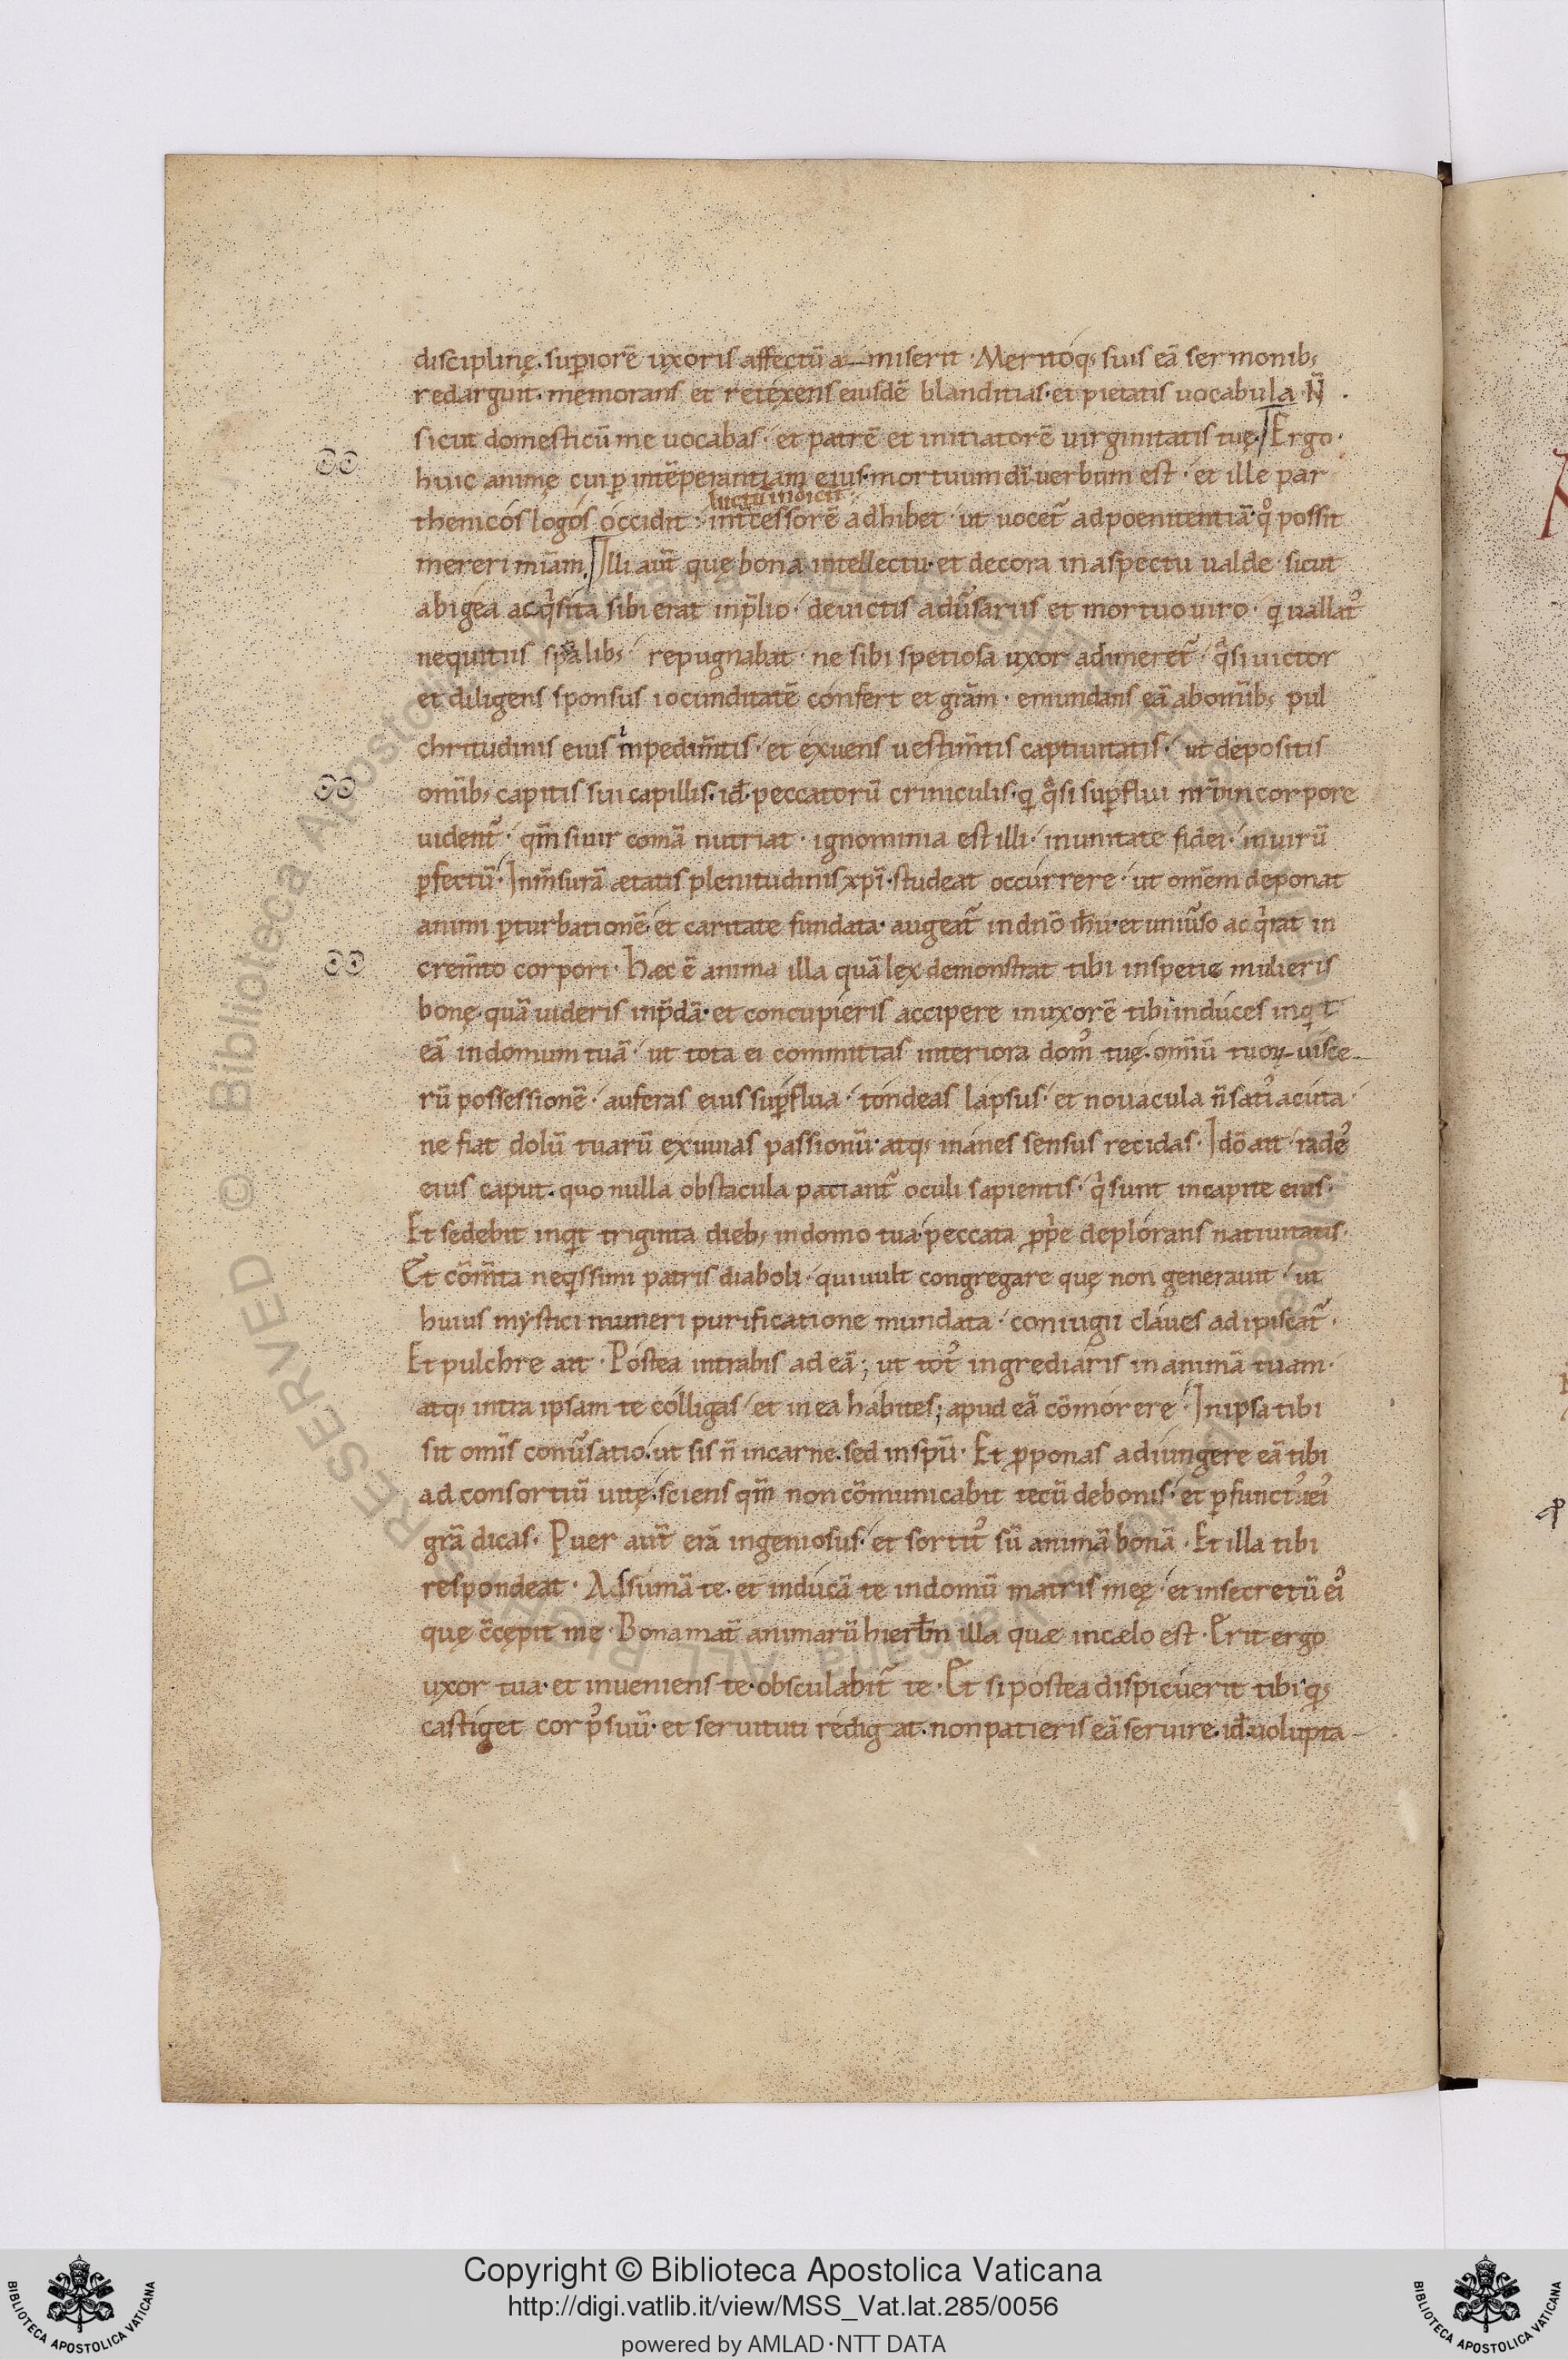 disciplinę. suꝑiorē uxoris affectū a—miserit · Meritoq; suis eā sermonib;
redarguit· memorans et retexens eiusdē blanditias· et pietatis uocabula· N̄ ·
sicut domesticū me uocabas· et patrē et initiatorē uirginitatis tuę. Ergo·
huic animę cui ꝑ intēperantiam eius· mortuum dī uerbum est· et ille par
luctū indicit
thenicós logós occidit· int̄cessorē adhibet· ut uocet᷑ ad poenitentiā· qͦ possit
mereri miām. Illi aūt quę bona intellectu· et decora in aspectu ualde· sicut
abigéa acqͥsita sibi erat in p̄lio· deuictis adũsariis et mortuo uiro· qͥ uallatꝰ
nequitiis sp̄alib; repugnabat· ne sibi spetiosa uxor adimeret᷑· qͣsi uictor
et diligens sponsus iocunditatē confert et grām· emundans eā ab om̄ib; pul
chritudinis eius inpedim̄tis· et exuens uestim̄tis captiuitatis· ut depositis
om̄ib; capitis sui capillis· id̄· peccatorū criniculis· qͥ qͣsi suꝑflui nr̄o in corpore
uident᷑· qm̄ si uir comā nutriat· ignominia est illi· in unitate fidei· in uirū
ꝑfectū· In m̄surā ætatis plenitudinis xp̄i· studeat occurrere· ut om̄em deponat
animi ꝑturbationē· et caritate fundata· augeat᷑ in dn̄o ih̄u· et uniũso acqͥrat in
crem̄to corpori· Hæc ē anima illa quā lex demonstrat tibi in spetie mulieris
bonę· quā uideris in p̄dā· et concupieris accipere in uxorē tibi induces inqͥt
eā in domum tuā· ut tota ei committas interiora domꝰ tuę. om̄iū tuoꝝ uisce—
rū possessionē· auferas eius suꝑflua· tondeas lapsus· et nouacula n̄ satꝰ acuta·
ne fiat dolū tuarū exuuias passionū· atq; inánes sensus recidas· Idō ait· radeꝰ
eius caput· quo nulla obstacula patiant᷑ oculi sapientis· qͥ sunt in capite eius·
Et sedebit inqͥt triginta dieb; in domo tua· peccata ꝓpͥe deplórans natiuitatis·
Et cōm̄ta neqͥssimi patris diaboli· qui uult congregare quę non generauit· ut
huius mýstici muneri purificatione mundata· coniugii claues adipiscat᷑·
Et pulchre ait· Postea intrabis ad eā; ut totꝰ ingrediaris in animā tuam·
atq; intra ipsam te cólligas· et in ea hábites; apud eā cōmórere· In ipsa tibi
sit om̄is conũsatio· ut sis n̄ in carne· sed in sp̄u· Et ꝓponas adiungere eā tibi
ad consortiū uitę· sciens qm̄ non cōmunicabit tecū de bonis· et ꝑfunctꝰ eiꝰ
grā dicas· Puer aūt erā ingeniosus· et sortitꝰ sū animā bonā· Et illa tibi
respondeat· Assumā te· et inducā te in domū matris meę· et in secretū eiꝰ
quę c̄cępit me· Bona mat̄ animarū hierlm̄ illa quæ in cælo est· Erit ergo
uxor tua· et inueniens te· obsculabit᷑ te· Et si postea dispicúerit tibi q;
castiget corpꝰ suū· et seruituti redigat· non patieris eā seruire· id̄· uolupta—
Copyright © Biblioteca Apostolica Vaticana
http://digi.vatlib.it/view/MSS_Vat.lat.285/0056
powered by AMLAD·NTT DATA